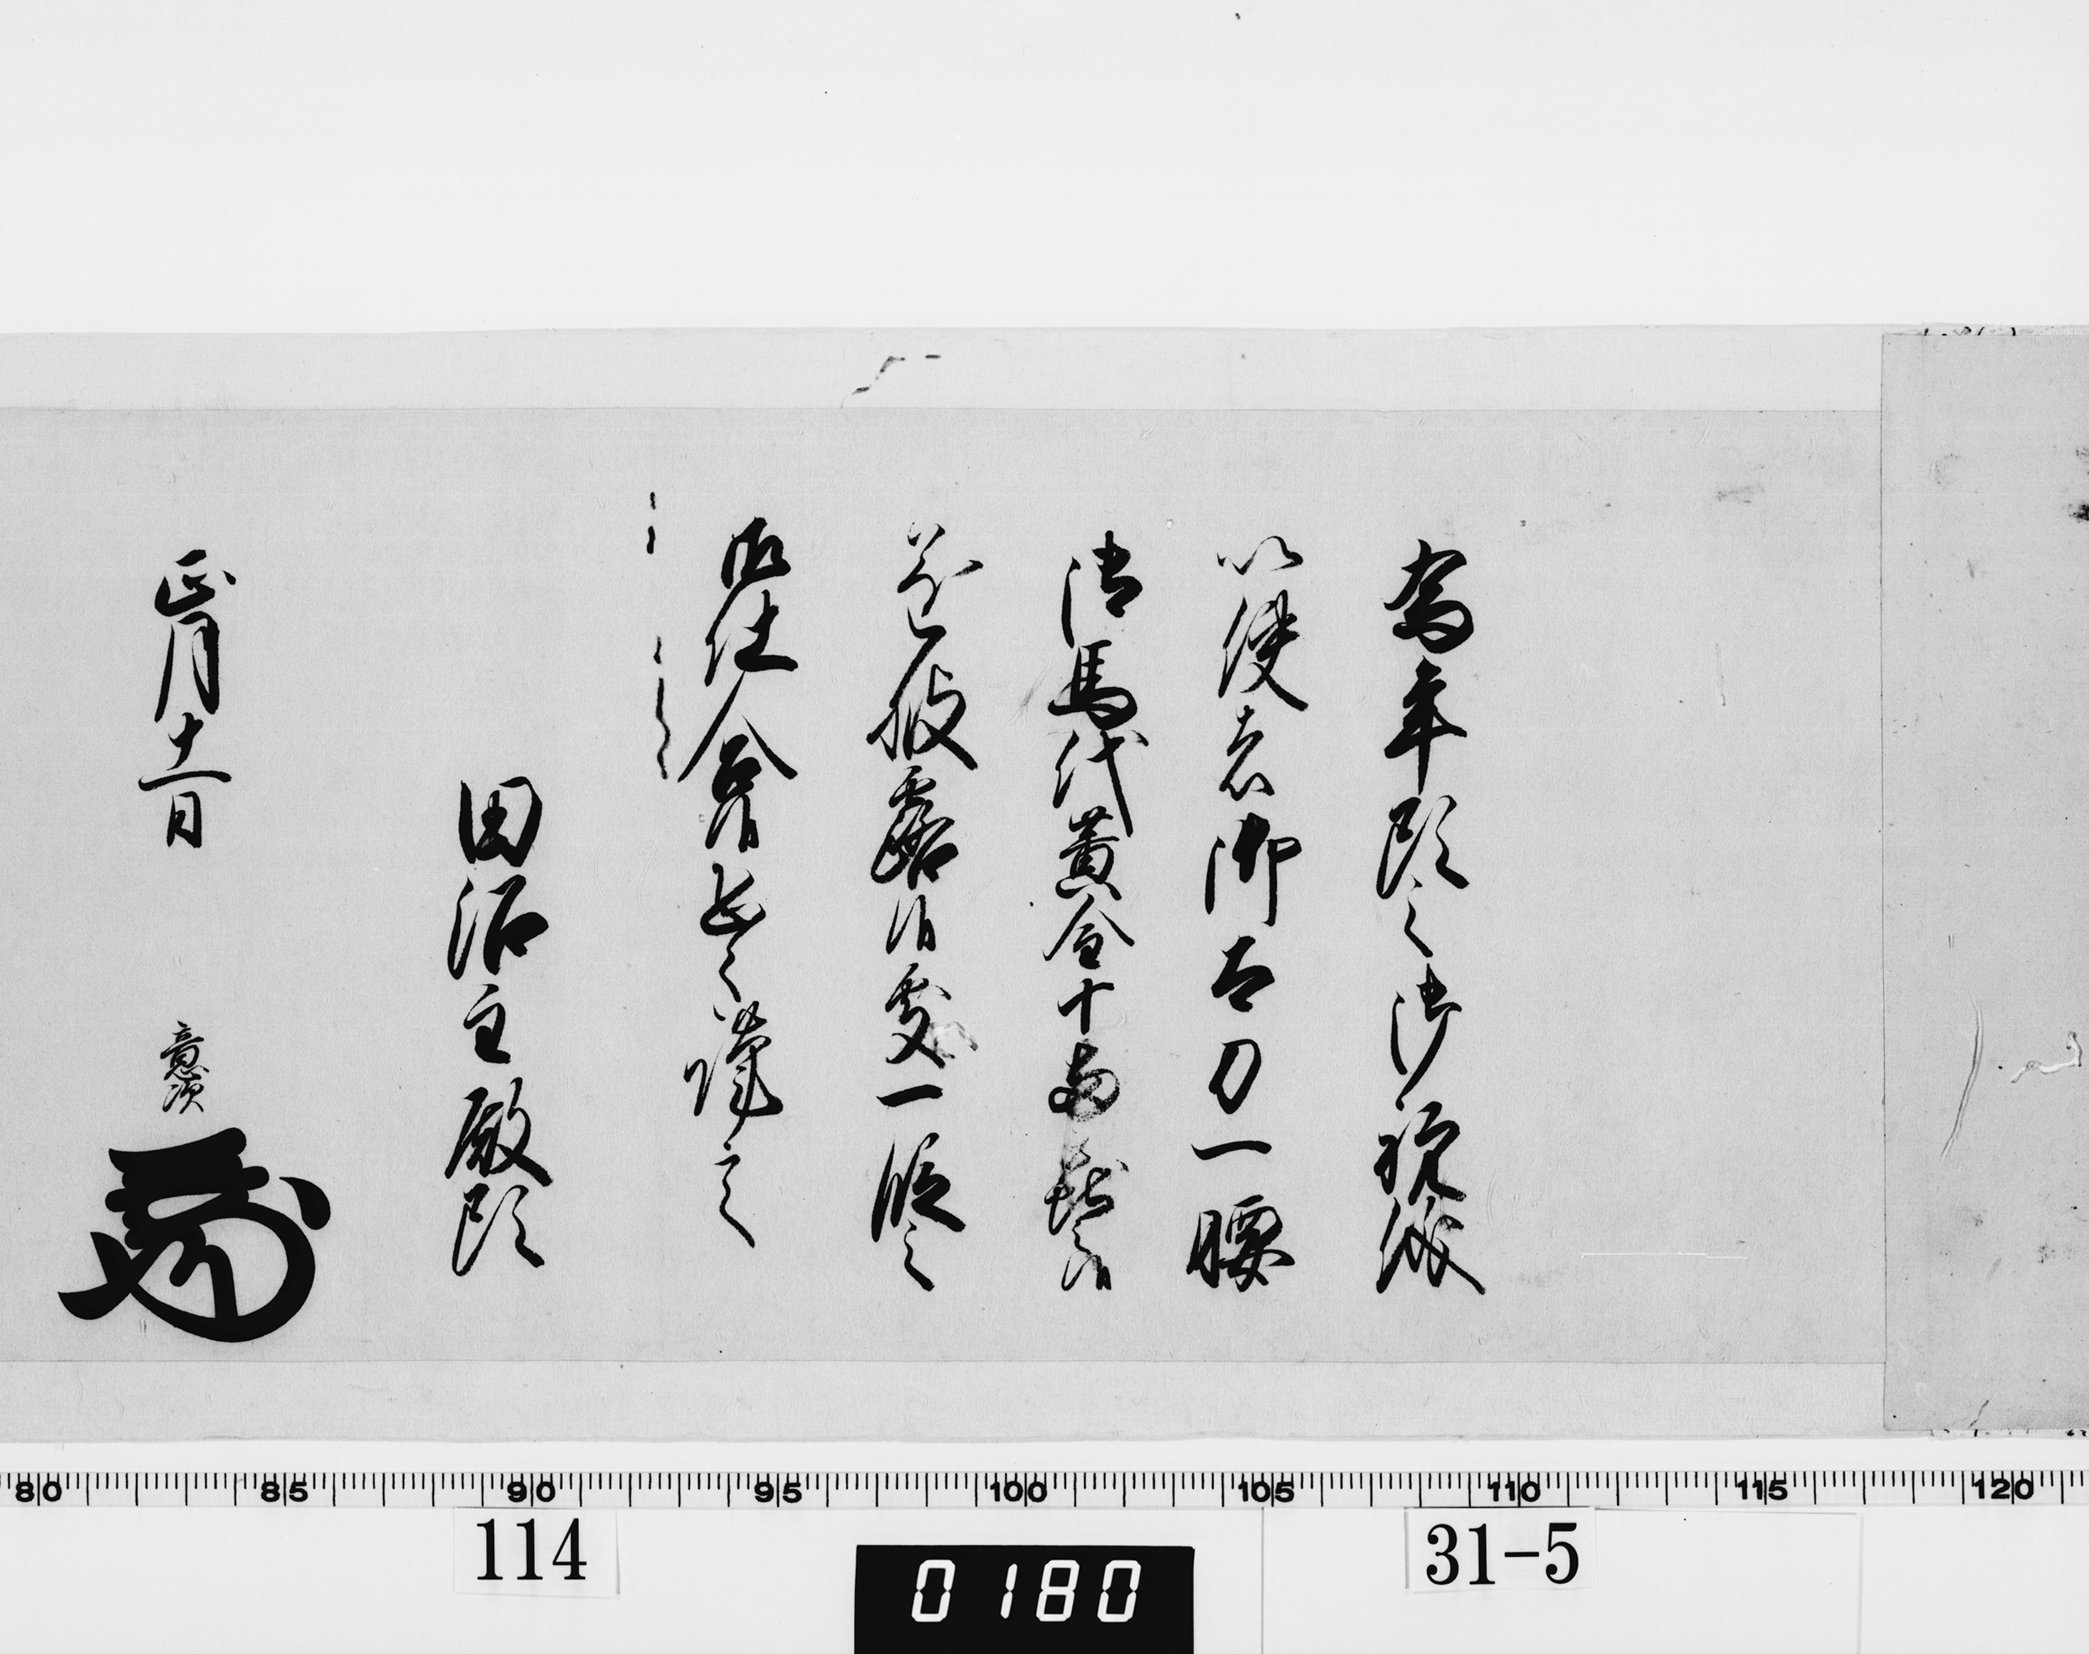 為年頭之御祝儀
以使者御太刀一腰
御馬代黄金十両献之候
遂披露候處一段之
御仕合候恐々謹言
田沼主殿頭
正月十一日 意次
80 85 90 95 100 105 110 115 120
114
0180
31-5